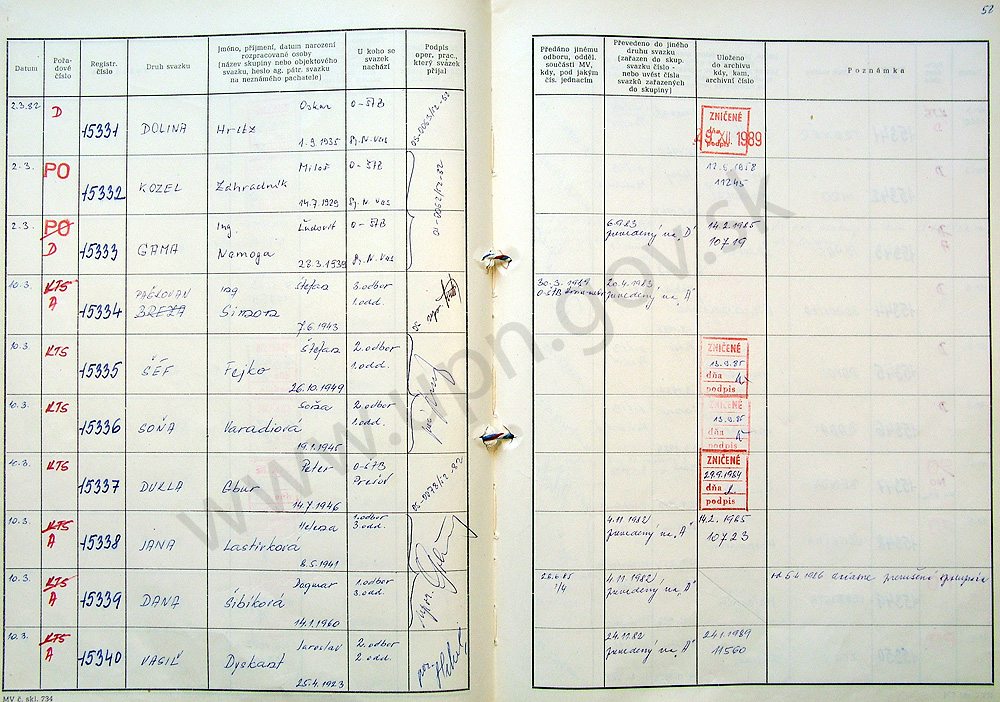 52
Datum
Pořadové číslo
Registr. číslo
Druh svazku
Jméno, příjmení, datum narození rozpracované osoby (název skupiny nebo objektového svazku, heslo ag. pátr. svazku na neznámého pachatele)
U koho se svazek nachází
Podpis oper. prac., který svazek přijal
Předáno jinému odboru, odděl. součásti MV, kdy, pod jakým čís. jednacím
Převedeno do jiného druhu svazku (zařazen do skup. svazku číslo - nebo uvést čísla svazků zařazených do skupiny)
Uloženo do archivu kdy, kam, archivní číslo
Poznámka
2.3.82 D 15331 DOLINA Oskar
Hritz
1.9.1935
ZNIČENÉ
dňa
podpis
XII. 1989
2.3. PO 15332 KOZEL Miloš
Záhradník
14.7.1929
11245
2.3. PO D 15333 GAMA Ing. Ľudovít
Namoga
14.2.1985
10719
10.3. KTS A 15334 BREZA ing Štefan
Simon
7.6.1943
3.odbor
1.odd.
30.3.1984
20.4.1983
prevedený na "A"
10.3. KTS 15335 ŠÉF Štefan
Fejko
26.10.1949
2.odbor
1.odd.
ZNIČENÉ
13.9.85
dňa
podpis
10.3. KTS 15336 SOŇA Soňa
Varadiová
19.1.1945
2.odbor
1.odd.
ZNIČENÉ
13.9.85
dňa
podpis
10.3. KTS 15337 DUKLA Peter
Gbur
14.7.1946
0-ŠTB
Prešov
ZNIČENÉ
27.9.1984
dňa
podpis
10.3. KTS A 15338 JANA Helena
Lastivková
8.5.1941
1.odbor
3.odd.
4.11.1982
prevedený na "A"
14.2.1985
10723
10.3. KTS A 15339 DANA Dagmar
Šibíková
14.1.1960
1.odbor
3.odd.
26.6.85
1/4
4.11.1982
prevedený na "A"
10.3. KTS A 15340 VASIĽ Jaroslav
Dyskant
25.4.1923
2.odbor
2.odd.
24.11.82
prevedený na "A"
24.1.1989
11560
MV č. skl. 734
www.upn.gov.sk